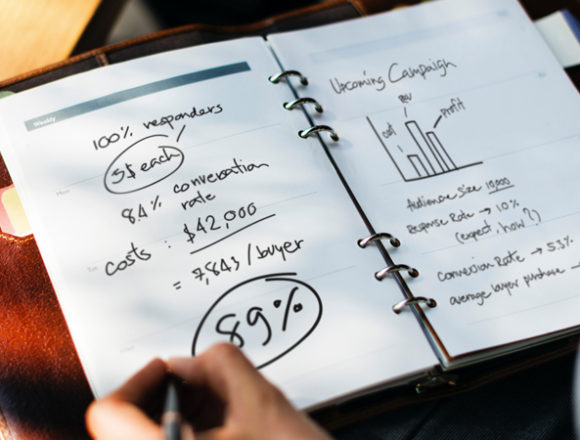 Weekly
100% responders
5$ each
84% conversation
rate
costs : $42,000
= 7,843 / buyer
89%
Upcoming Campaign
cost
profit
Audience size 10,000
Response Rate → 10%
(expect, how?)
Conversion Rate → 53%
average buyer purchase →